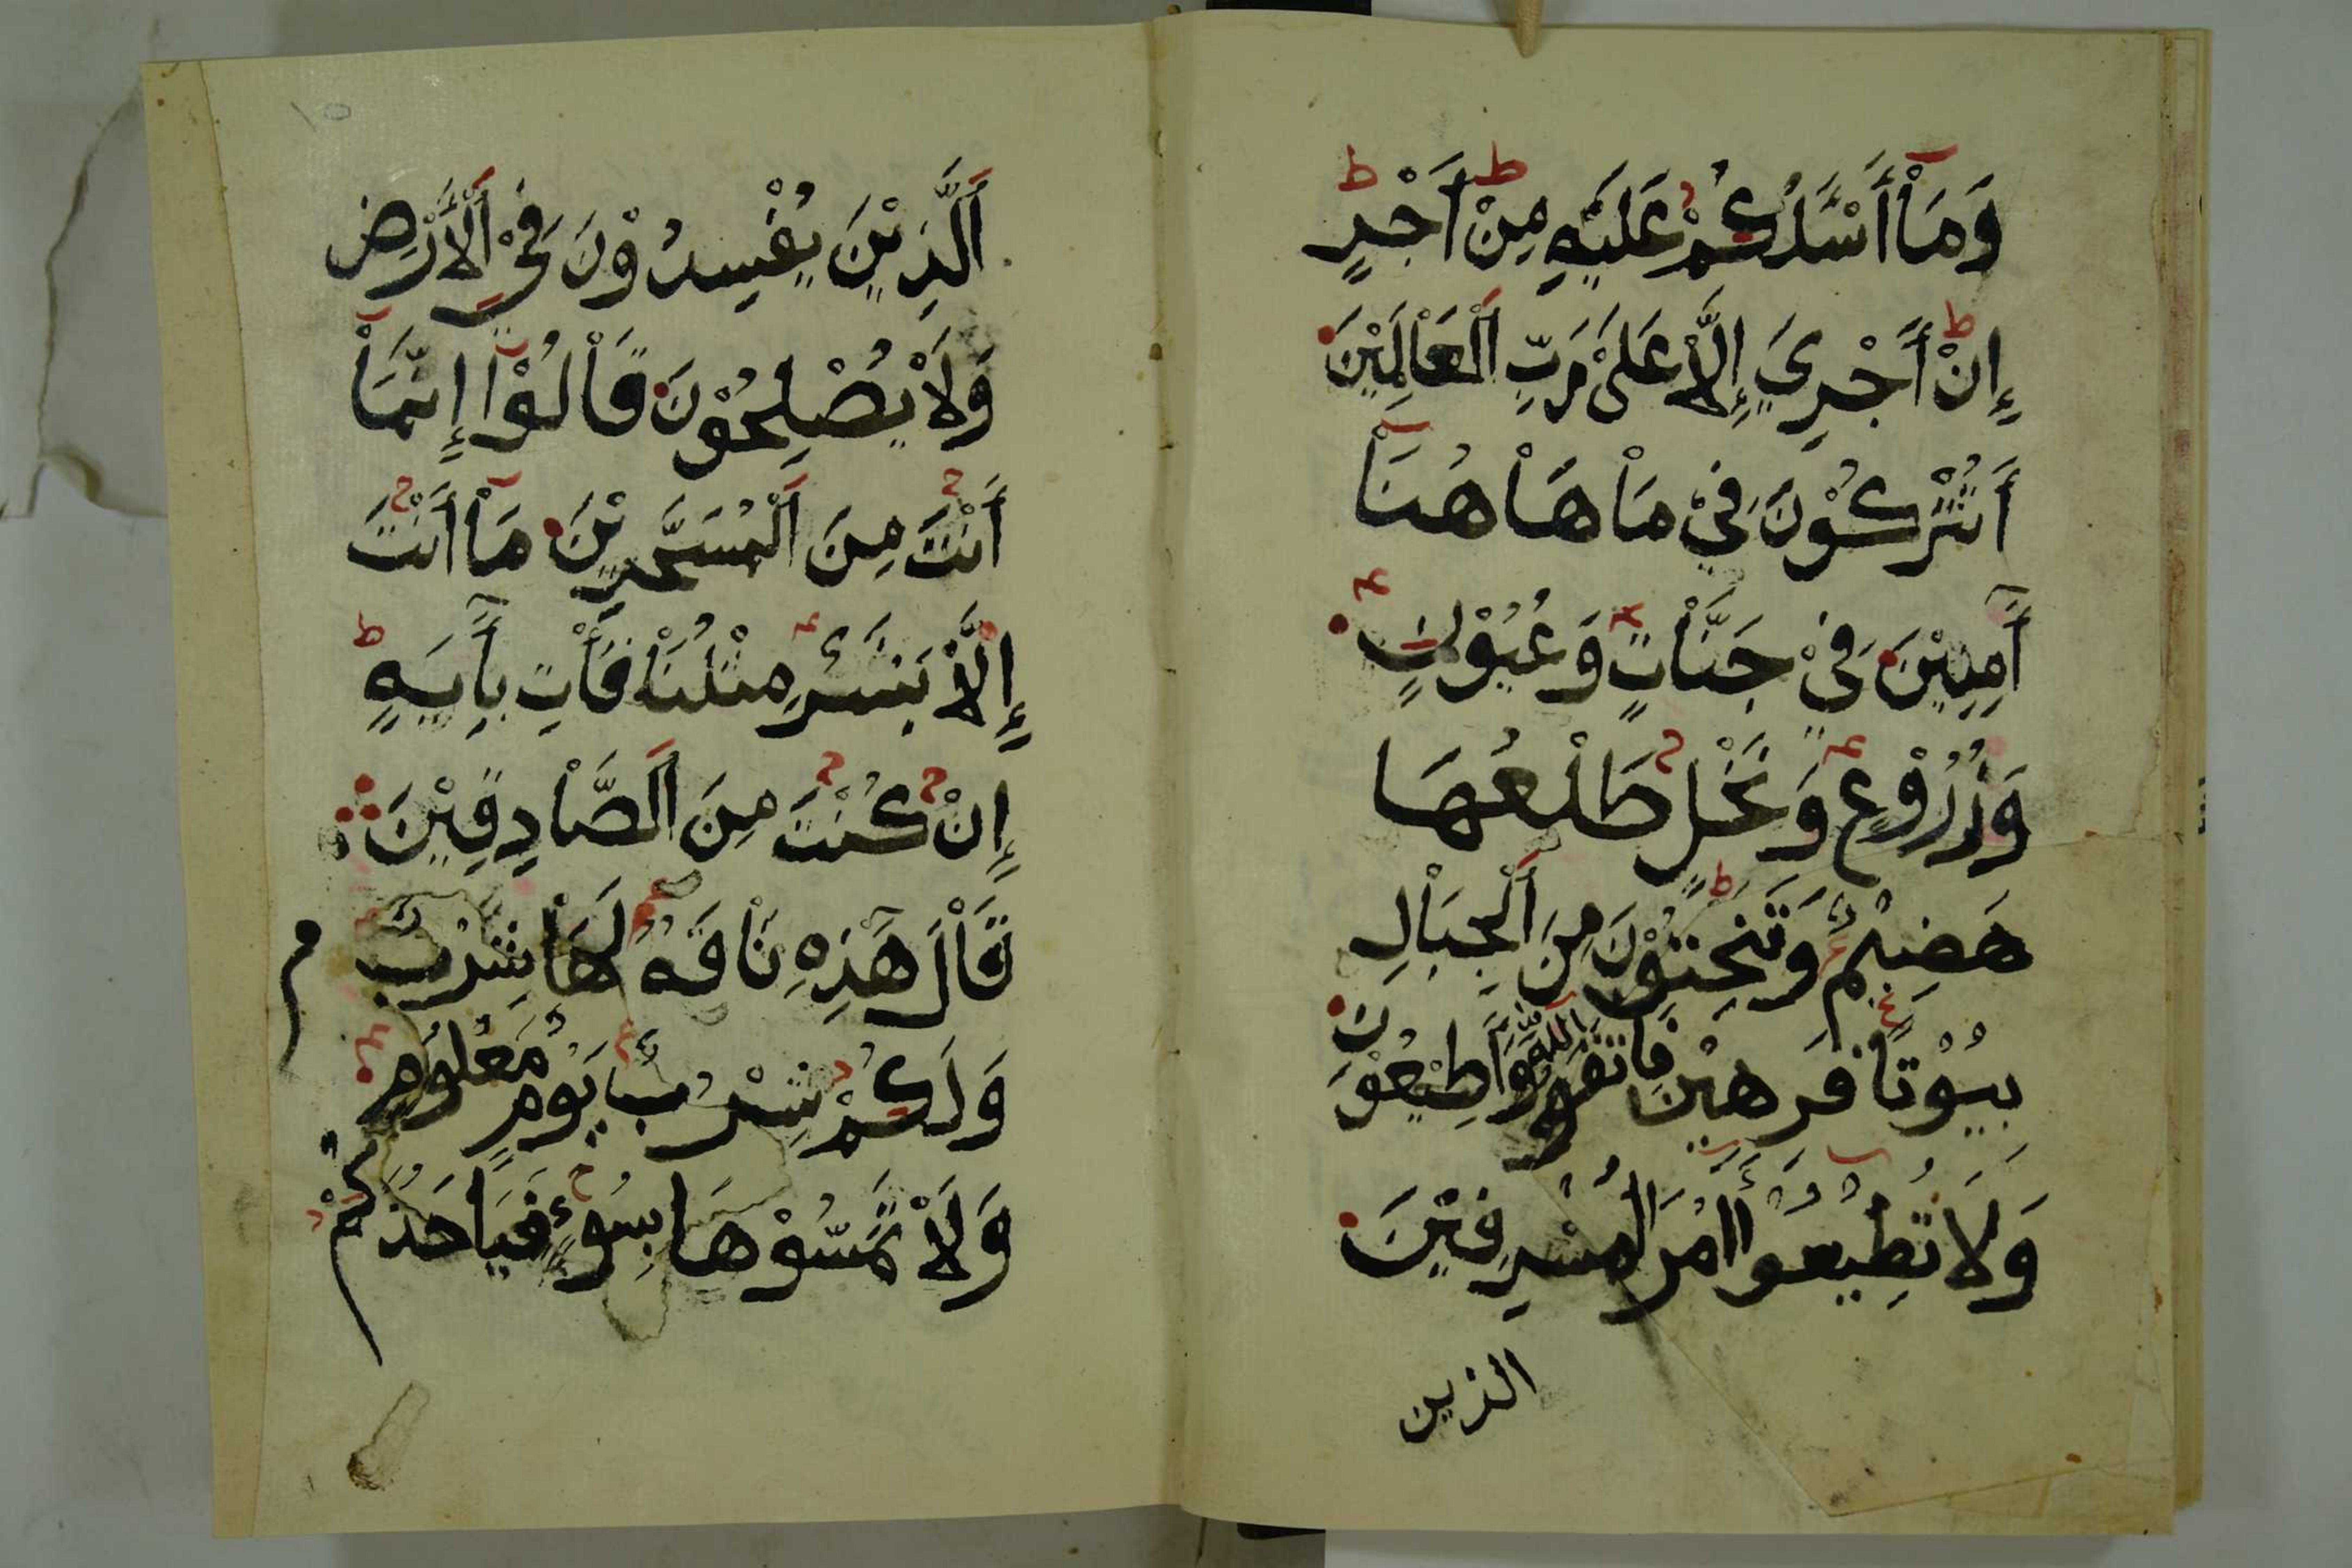 وَمَاْ أَسْـَٔلُكُمْ عَلَيْهِ مِنْ اَجْرٍ
إِنْ أَجْرِيَ إِلَّاْ عَلَىْ رَبِّ اَلْعَاْلَمِيْنَ
أَتُتْرَكُوْنَ فِيْ مَاْ هَاْهُنَاْ
آَمِنِيْنَ فِيْ جَنَّاْتٍ وَعُيُوْنٍ
وَزُرُوْعٍ وَنَخْلٍ طَلْعُهَا
هَضِيْمٌ وَتَنْحِتُوْنَ مِنَ اَلْجِبَاْلِ
بُيُوْتًا فَرِهِيْنَ فَاتَّقُوا اللَّهَ وَأَطِيْعُوْنِ
وَلَا تُطِيْعُوا أَمْرَ الْمُسْرِفِيْنَ
الذين
١٥
اَلَّذِيْنَ يُفْسِدُوْنَ فِيْ اَلْأَرْضِ
وَلَاْ يُصْلِحُوْنَ قَاْلُوْا إِنَّمَاْ
أَنْتَ مِنَ اَلْمُسَحَّرِيْنَ مَاْ أَنْتَ
إِلَّاْ بَشَرٌ مِثْلُنَاْ فَأْتِ بِأَيَةٍ
إِنْ كُنْتَ مِنَ اَلصَّاْدِقِيْنَ
قَاْلَ هَذِهِ نَاْقَةٌ لَهَاْ شِرْبٌ
م
وَلَكُمْ شِرْبُ يَوْمٍ مَعْلُوْمٍ
وَلَاْ تَمَسُّوْهَا بِسُوْءٍ فَيَاخُذَكُمْ